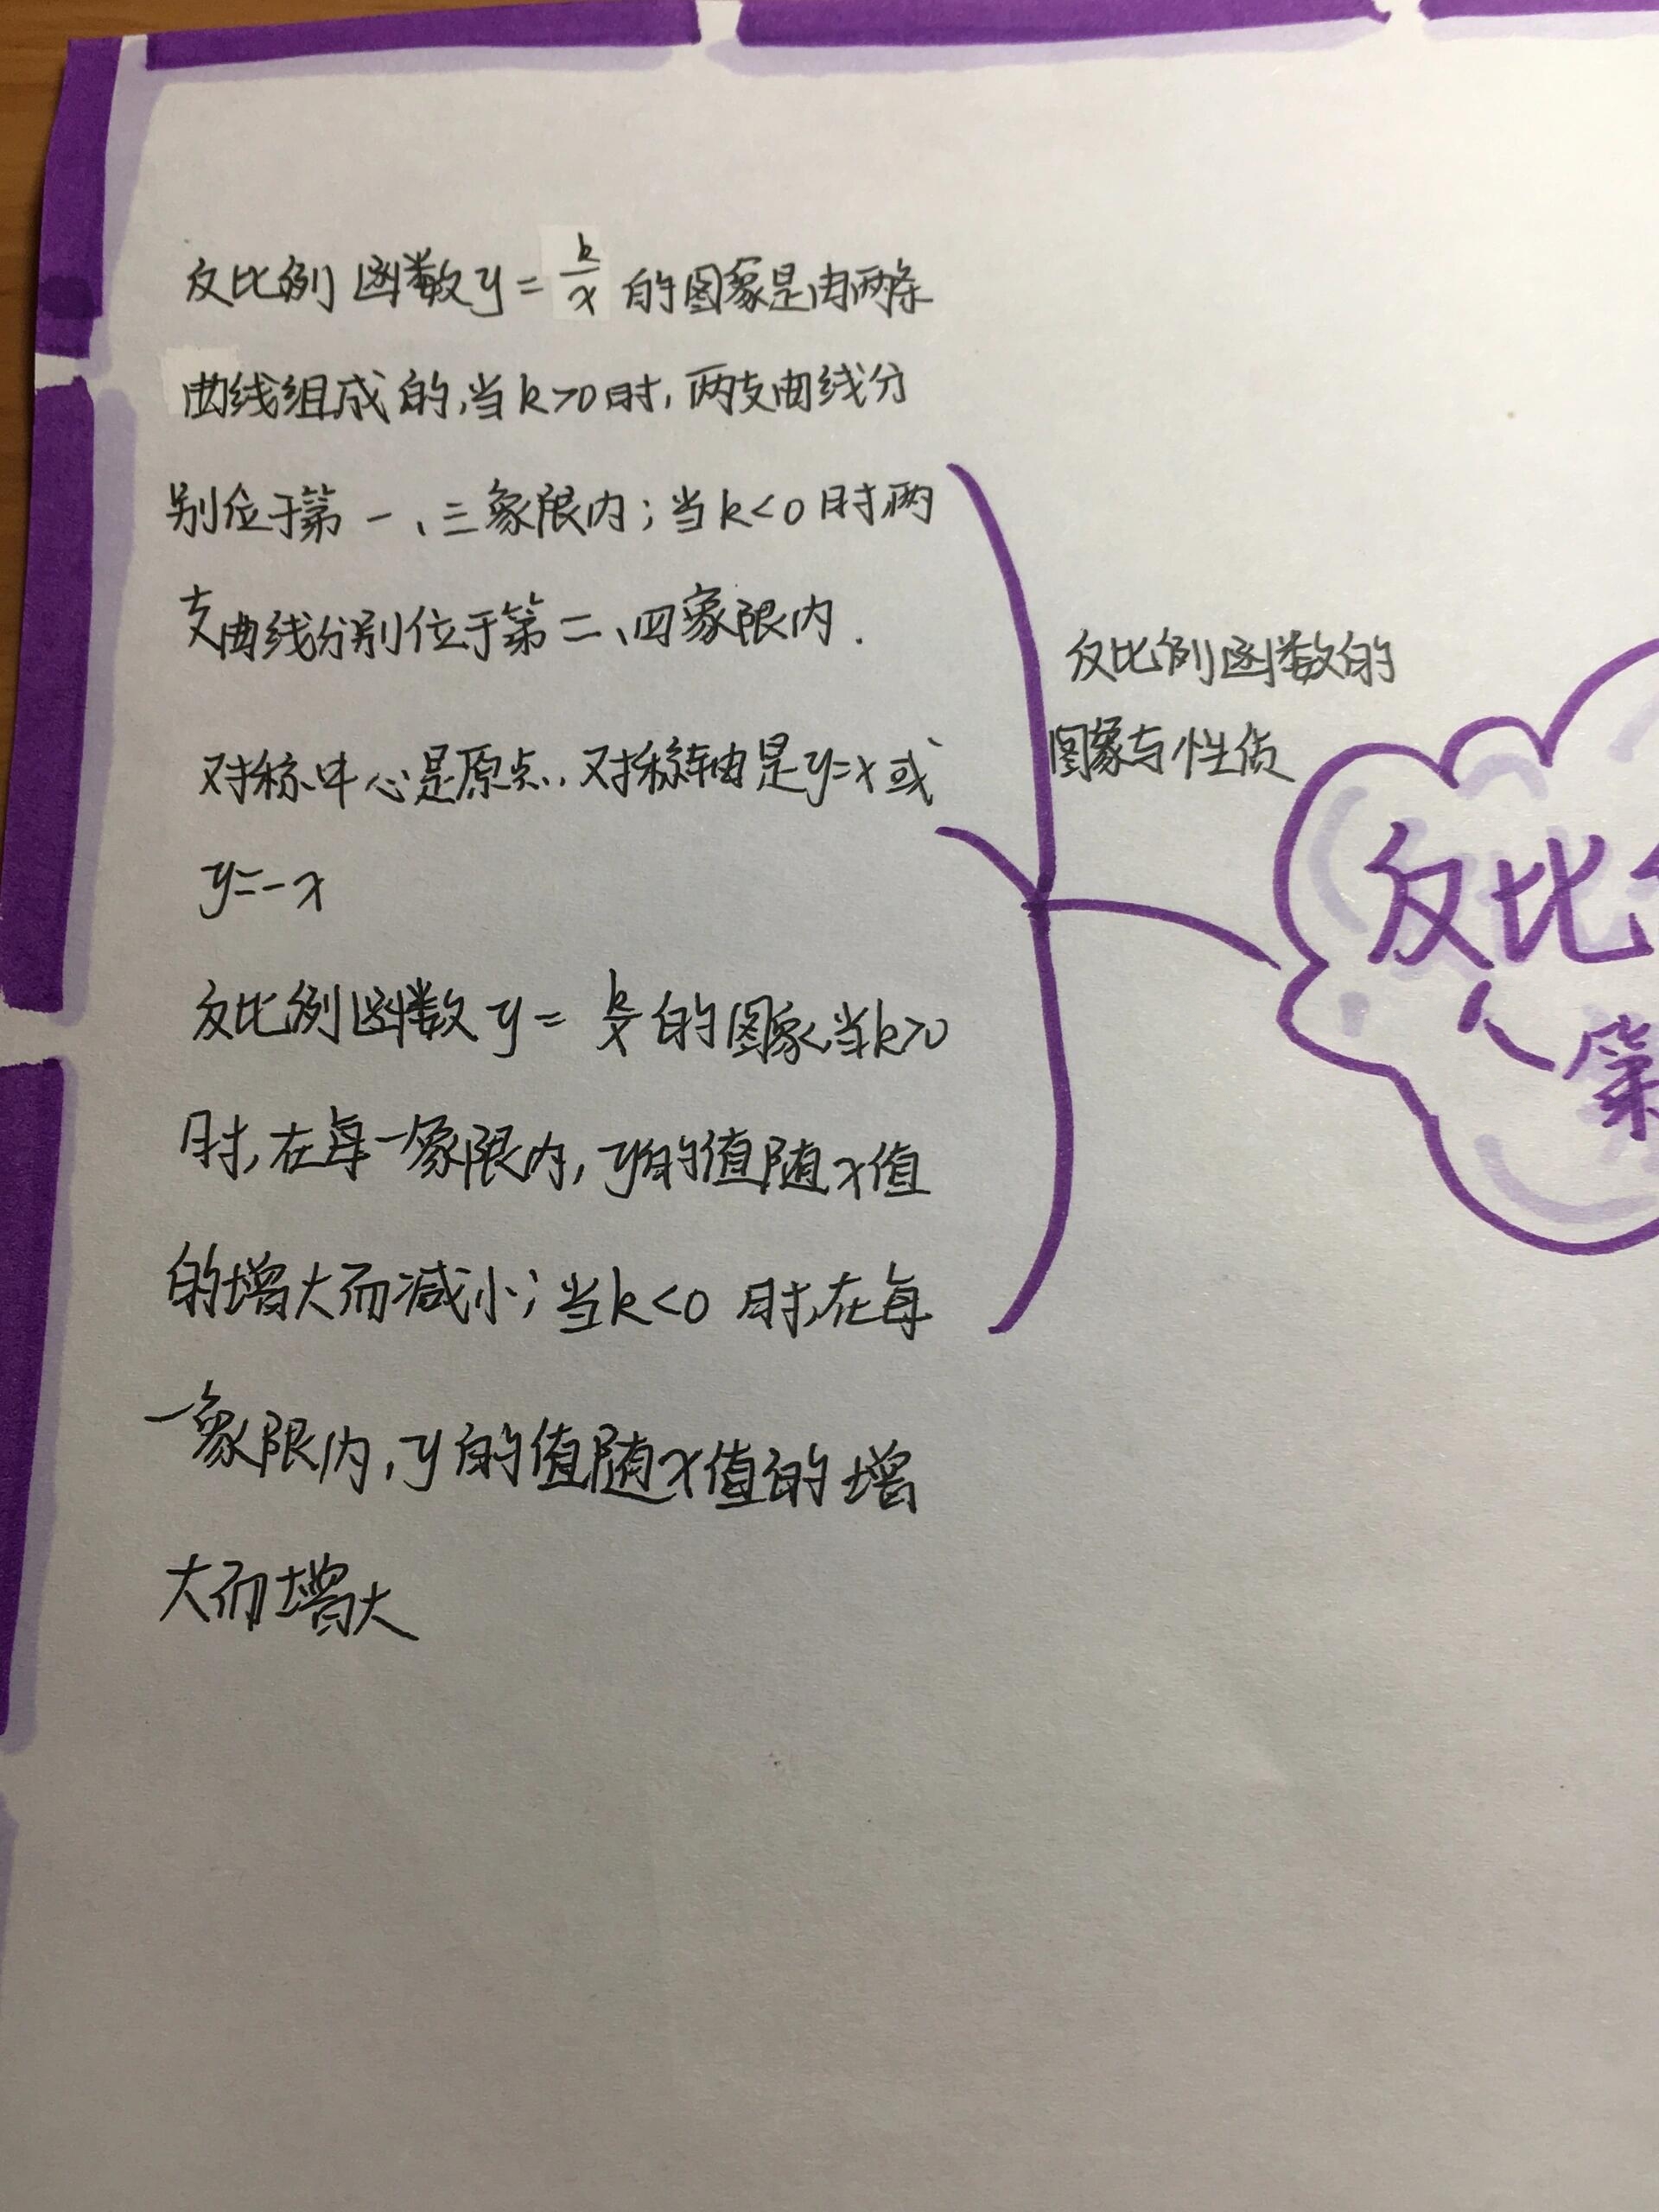 反比例函数y=k/x的图象是由两条
曲线组成的,当k>0时,两支曲线分
别位于第一、三象限内;当k<0时,两
支曲线分别位于第二、四象限内.
对称中心是原点.对称轴是y=x或
y=-x
反比例函数y=k/x的图象,当k>0
时,在每一象限内,y的值随x值
的增大而减小;当k<0时,在每
一象限内,y的值随x值的增
大而增大
反比例函数的
图象与性质
反比
第